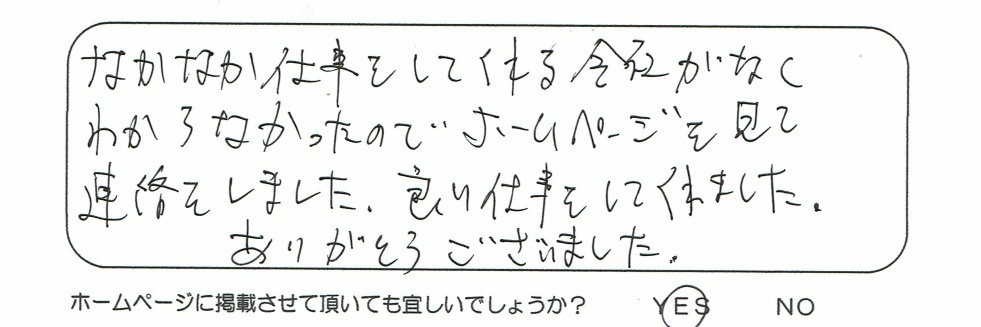 なかなか仕事をしてくれる会社がなく
わからなかったので ホームページを見て
連絡をしました. 良い仕事をしてくれました.
ありがとうございました.
ホームページに掲載させて頂いても宜しいでしょうか? YES NO